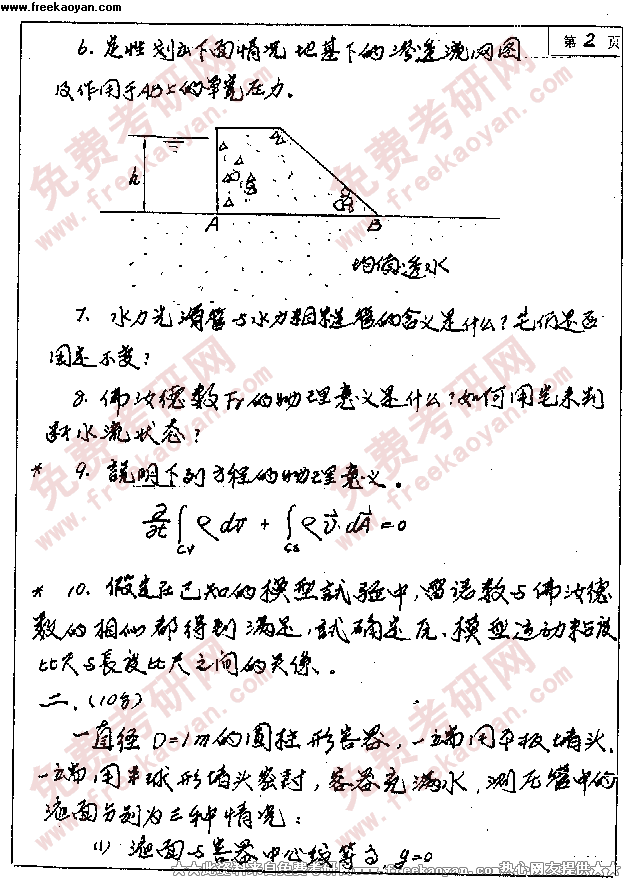 www.freekaoyan.com
第 2 页
6. 定性划出下面情况地基下的渗透流网图
及作用于AB上的单宽压力。
h
A
B
均值透水
7. 水力光滑管与水力粗糙管的含义是什么？它们是否
固定不变？
8. 佛汝德数Fr的物理意义是什么？如何用它来判
断水流状态？
* 9. 説明下列方程的物理意义。
∂/∂t ∫cv ρ dv + ∫cs ρ v⃗·dA⃗ = 0
* 10. 假定在已知的模型試验中，雷诺数与佛汝德
数的相似都得到满足，試确定原、模型运动粘度
比尺与長度比尺之间的关係。
二、（10分）
一直径 D=1m 的圆柱形容器，一端用平板堵头，
一端用半球形堵头密封，容器充满水，测压管中的
液面分别为三种情况：
(1) 液面与容器中心线等高，
免费考研网
www.freekaoyan.com